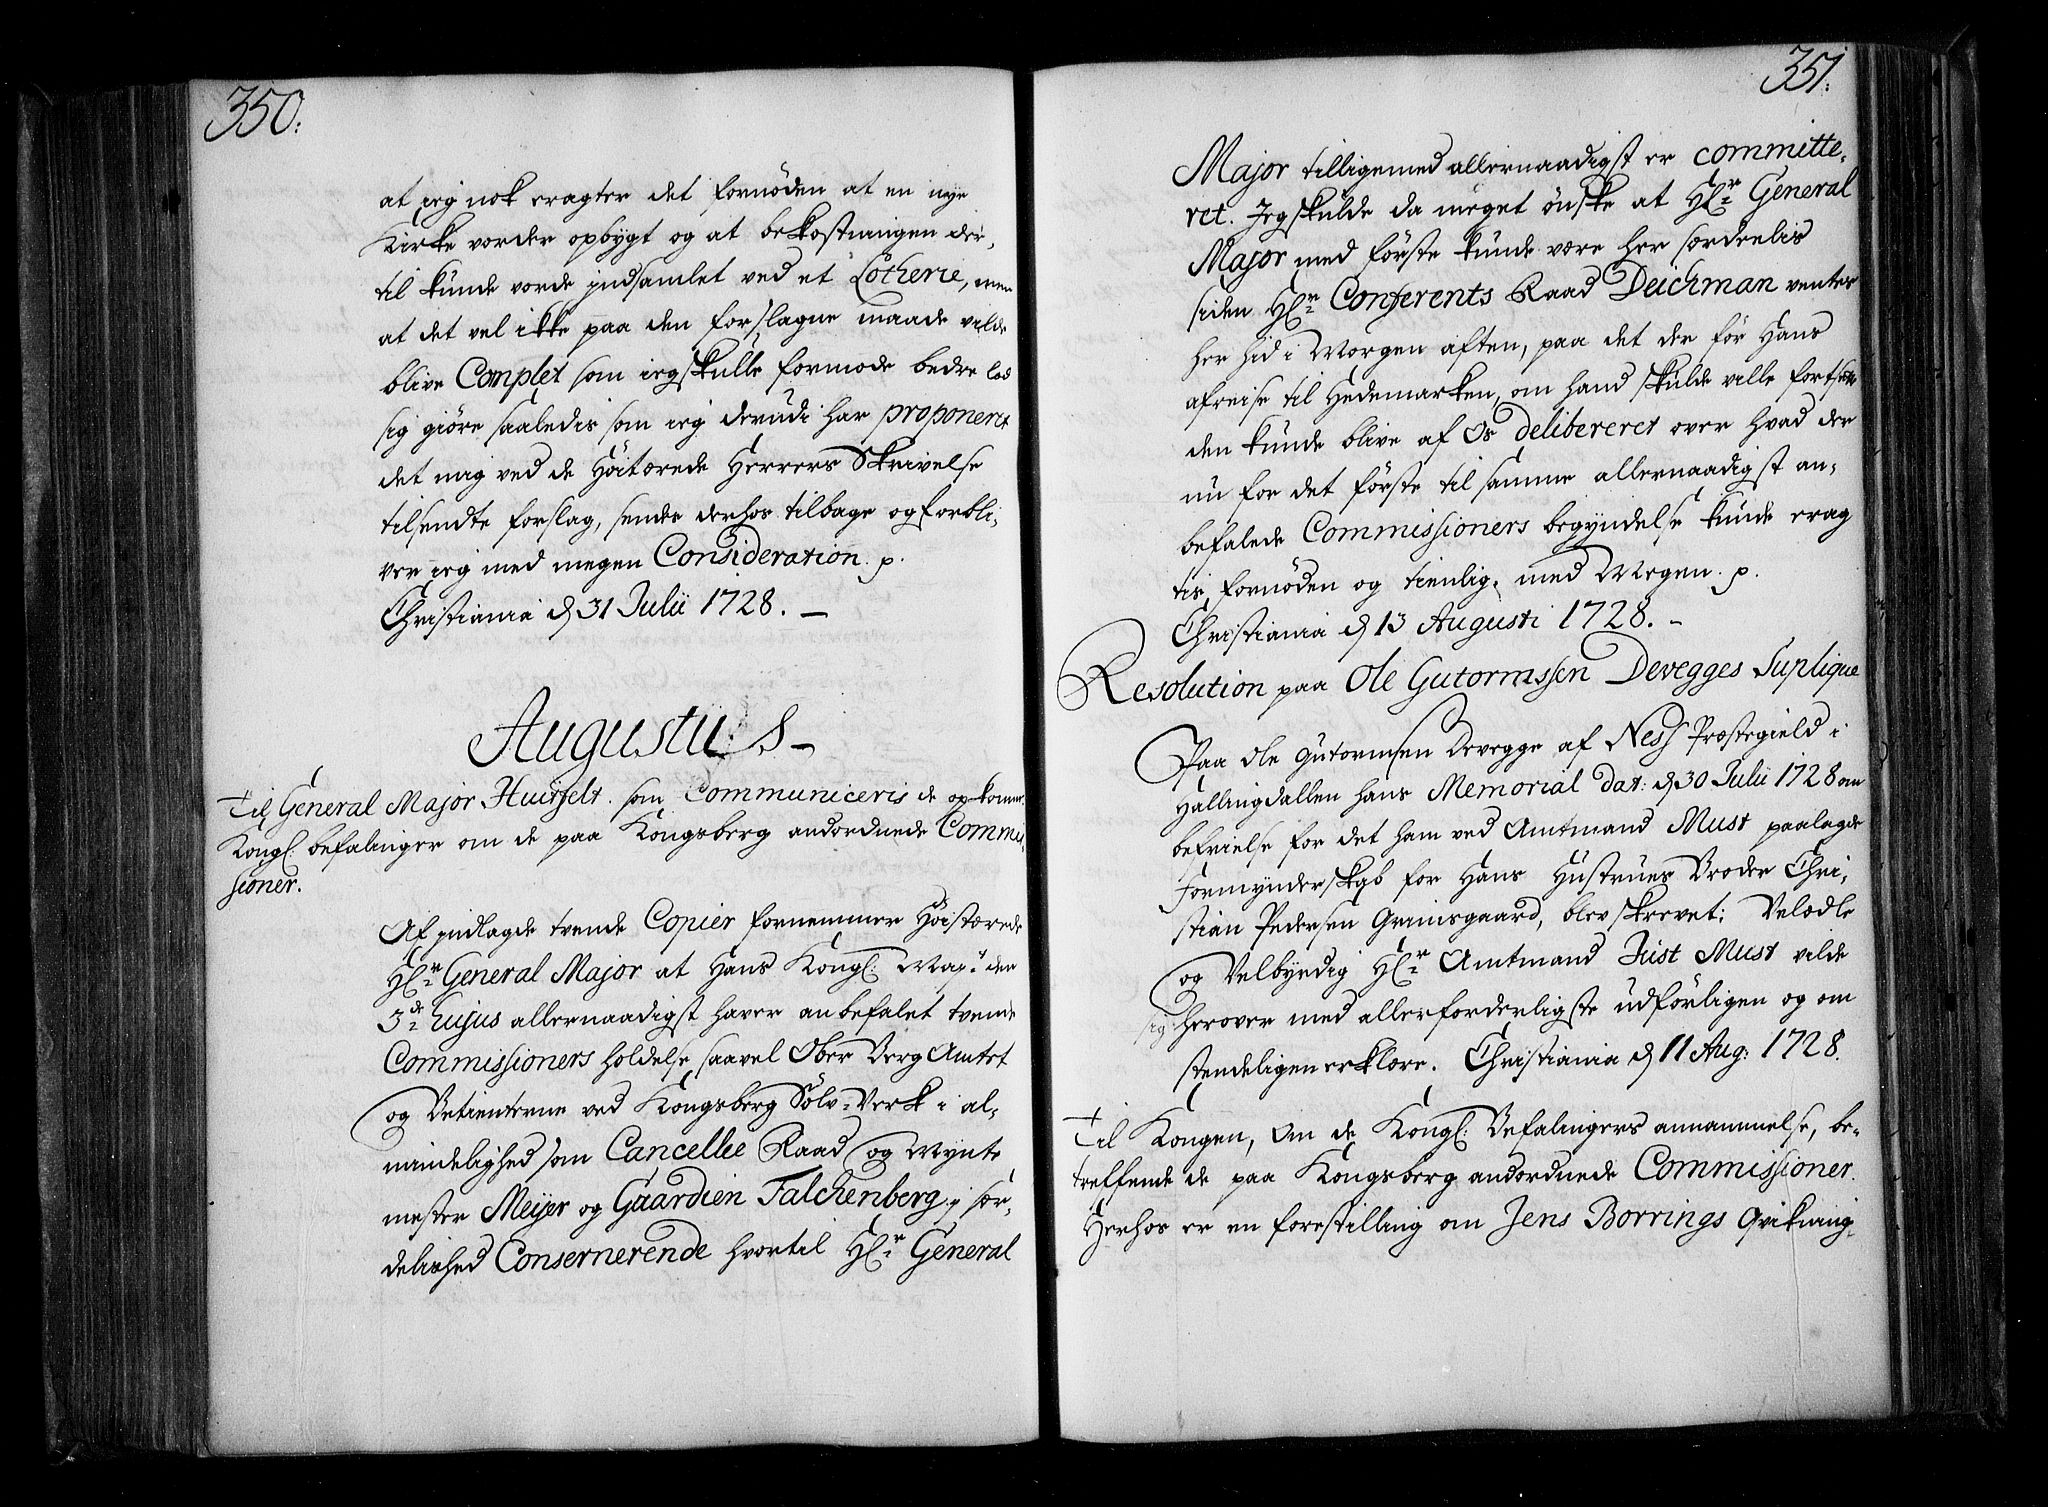 350.
at jeg nok eragter det fornöden at en nye
Kirke vorder opbygt og at bekostningen der,
til kunde vorde indsamlet ved et Lotherie, men
at det vel ikke paa den forslagne maade vilde
blive Complet som jeg skulle formode bedre lod
sig giöre saaledis som jeg derudi har proponeret
det mig ved de Höitærede Herrers Skrivelse
tilsendte forslag, sendes derhos tilbage og forbli,
ver jeg med megen Consideration. p.
Christiania d 31 Julii 1728. —
Augustus —
Til General Major Huitfelt. som Communiceris de op komne
Kongl: befalinger om de paa Kongsberg andordnede Commis,
sioner.
Af indlagde tvende Copier fornemmer Höistærede
Hr General Major at Hans Kongl: Mayt den
3de hujus allernaadigst haver anbefalet tvende
Commissioners holdelse, saavel Ober Berg Amtet
og Betienterne ved Kongsberg Sölv-Verk i al,
mindelighed som Cancellie Raad og Mynte
mester Meijer og Guardien Falchenberg i sær,
delished Consernerende hvortil Hr General
351.
Major tilligemed allernaadigst er committe,
ret. Jeg skulde da meget önske at Hr General
Major med förste kunde være her særdeelis
siden Hr Conferents Raad Deichman ventes
her hid i Morgen aften, paa det der för Hans
afreise til Hedemarken, om hand skulde ville fortsætte
den kunde blive af Os delibereret over hvad der
nu for det förste til samme allernaadigst an,
befalede Commissioners begyndelse kunde erag
tis fornöden og tienlig, med Megen. p.
Christiania d 13 Augusti 1728. —
Resolution paa Ole Gutormssen Devegges Suplique
Paa Ole Gutormsen Devegge af Ness Præstegield i
Hallingdallen hans Memorial dat: d 30 Julii 1728 om
befrielse for det ham ved Amtmand Must paalagde
Formynderskab for Hans Hustrues Broder Chri,
stian Pedersen Grimsgaard, blev skrevet: Velædle
og Velbyrdig Hr Amtmand Just Must vilde
sig herover med allerforderligste udförligen og om
stendeligen erklære. Christiania d 11 Aug: 1728.
Til Kongen, Om de Kongl: Befalingers annammelse, be,
treffende de paa Kongsberg andordnede Commissioner.
Herhos er en forestilling om Jens Borrings Qvikning,